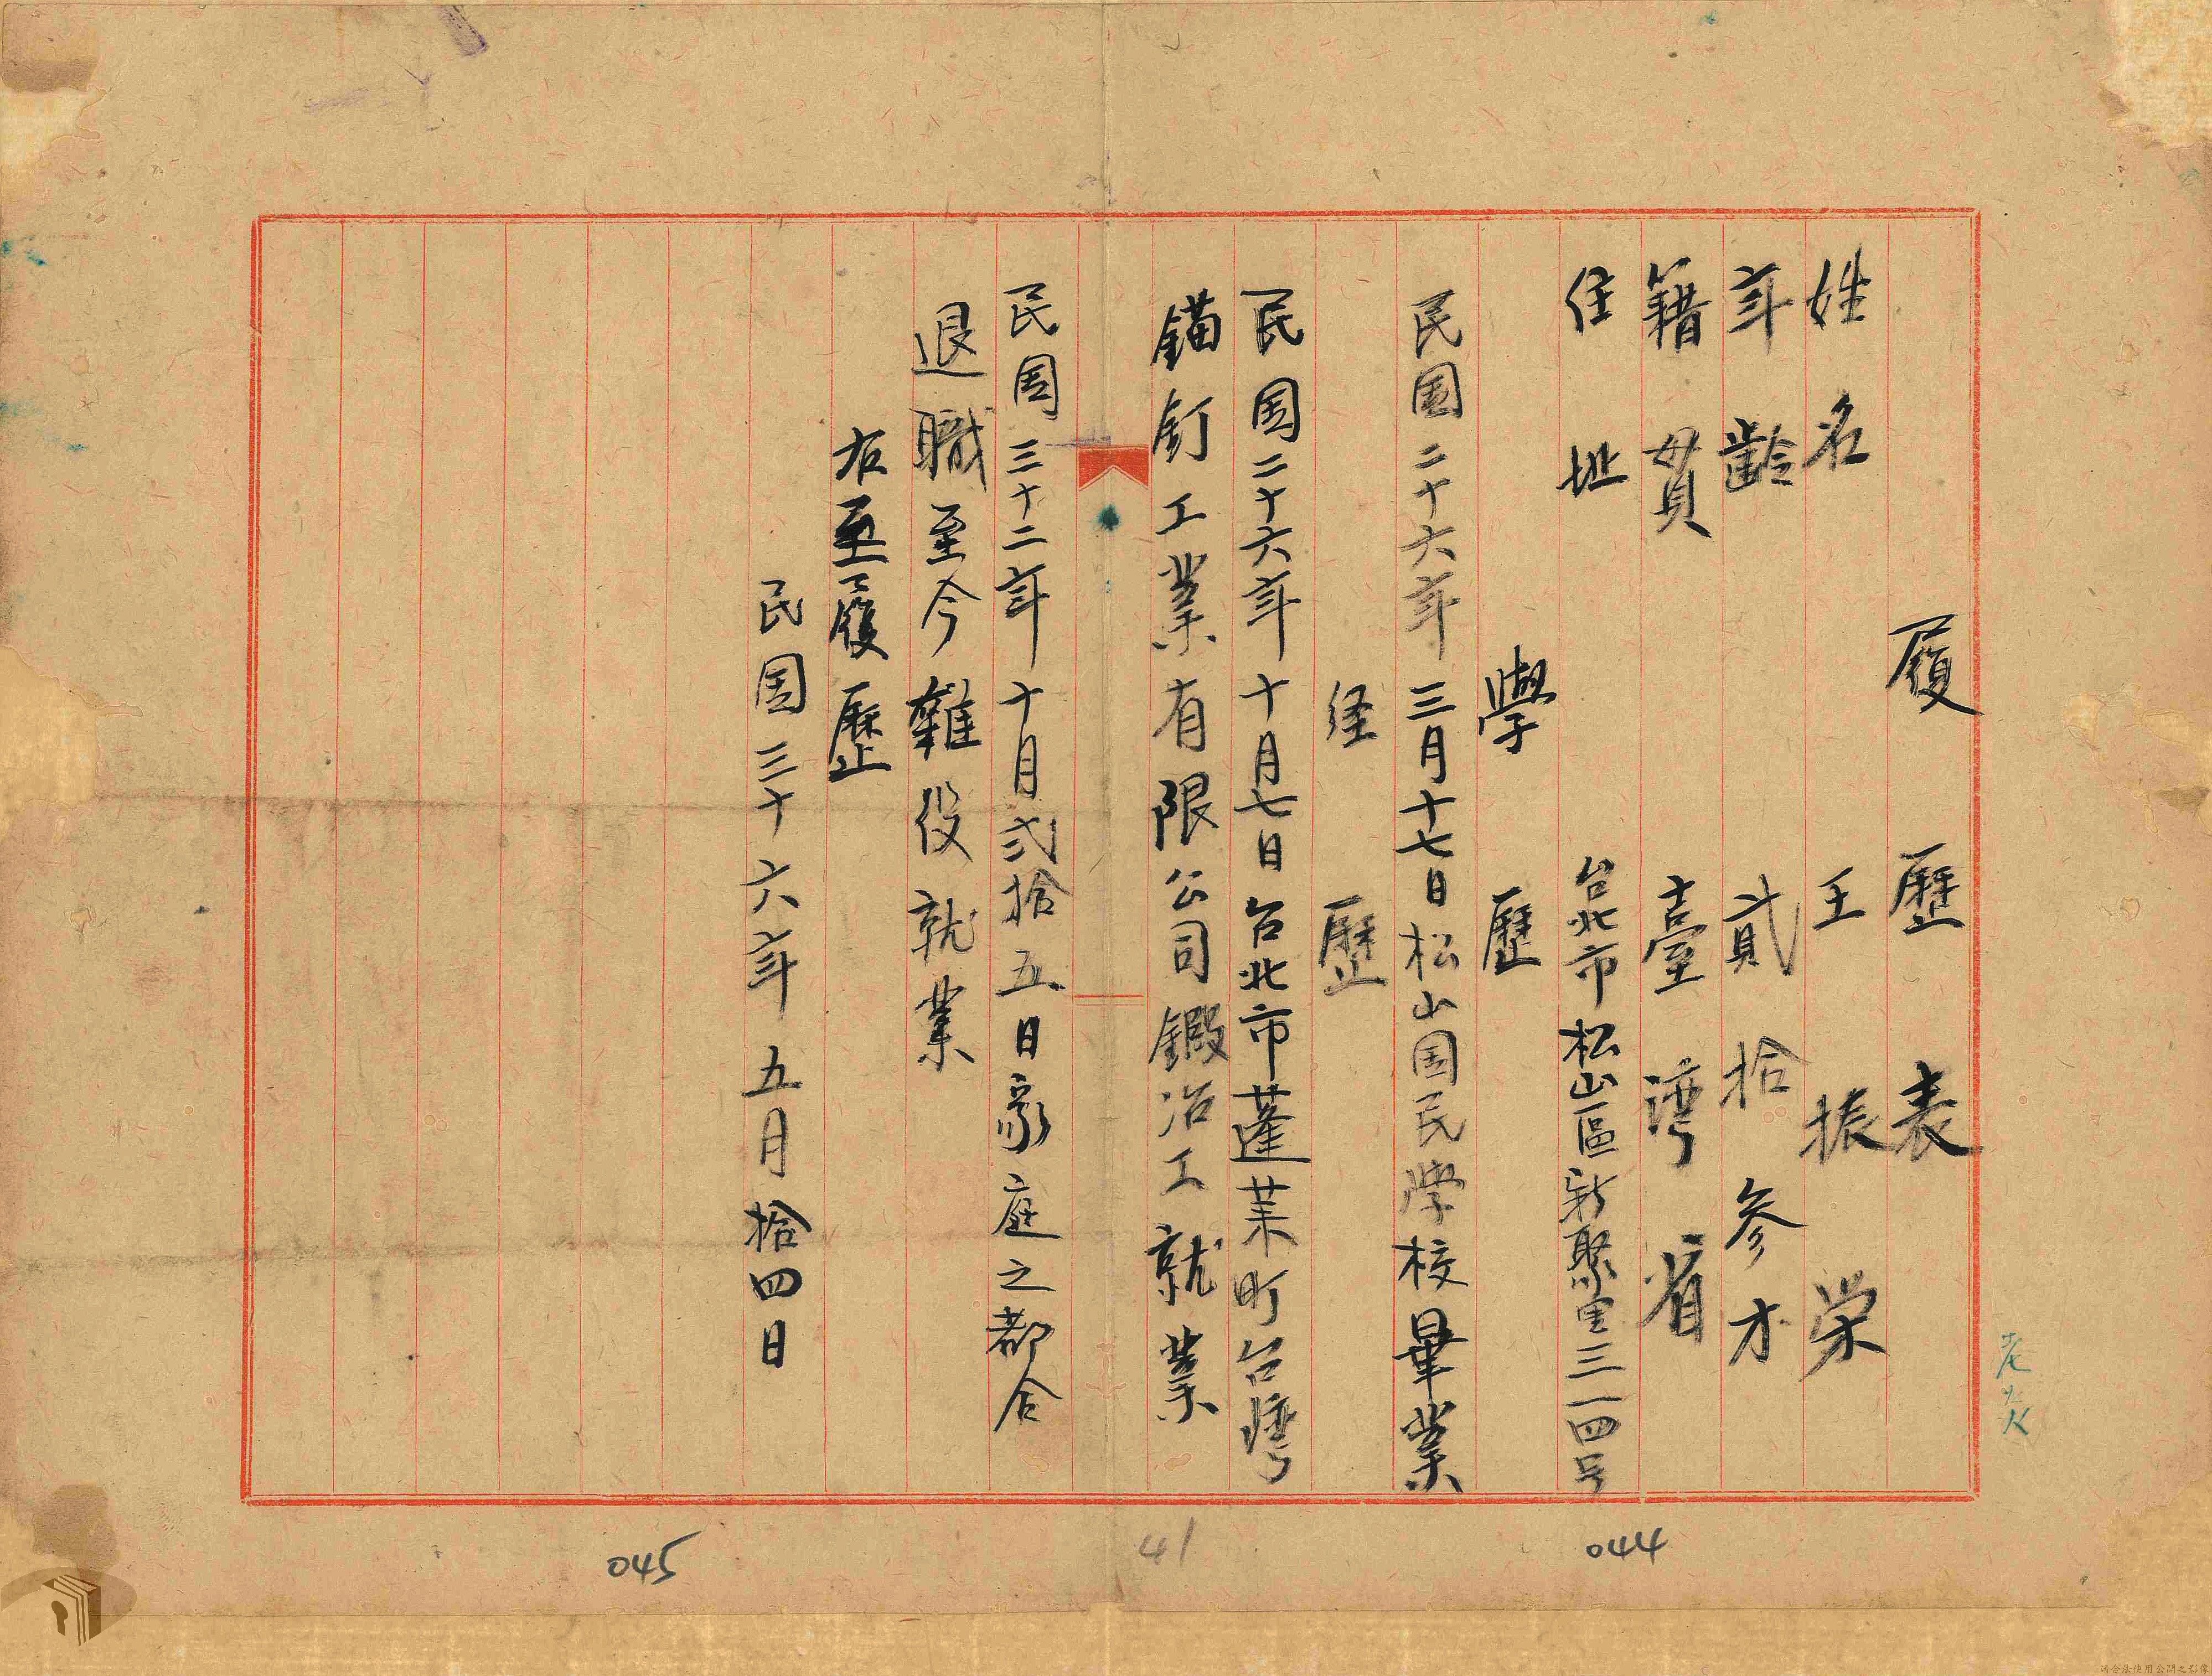 履歷表
姓名 王振栄
年齡 貳拾参才
籍貫 臺灣省
住址 台北市松山區新聚里三一四号
學歷
民国二十六年三月十七日松山国民学校畢業
経歷
民国二十六年十月七日台北市蓬莱町台湾
錨釘工業有限公司鍛冶工就業
民国三十二年十月弍拾五日家庭之都合
退職至今雜役就業
右至履歷
民国三十六年五月拾四日
044
41
045
請合法使用公開之影像